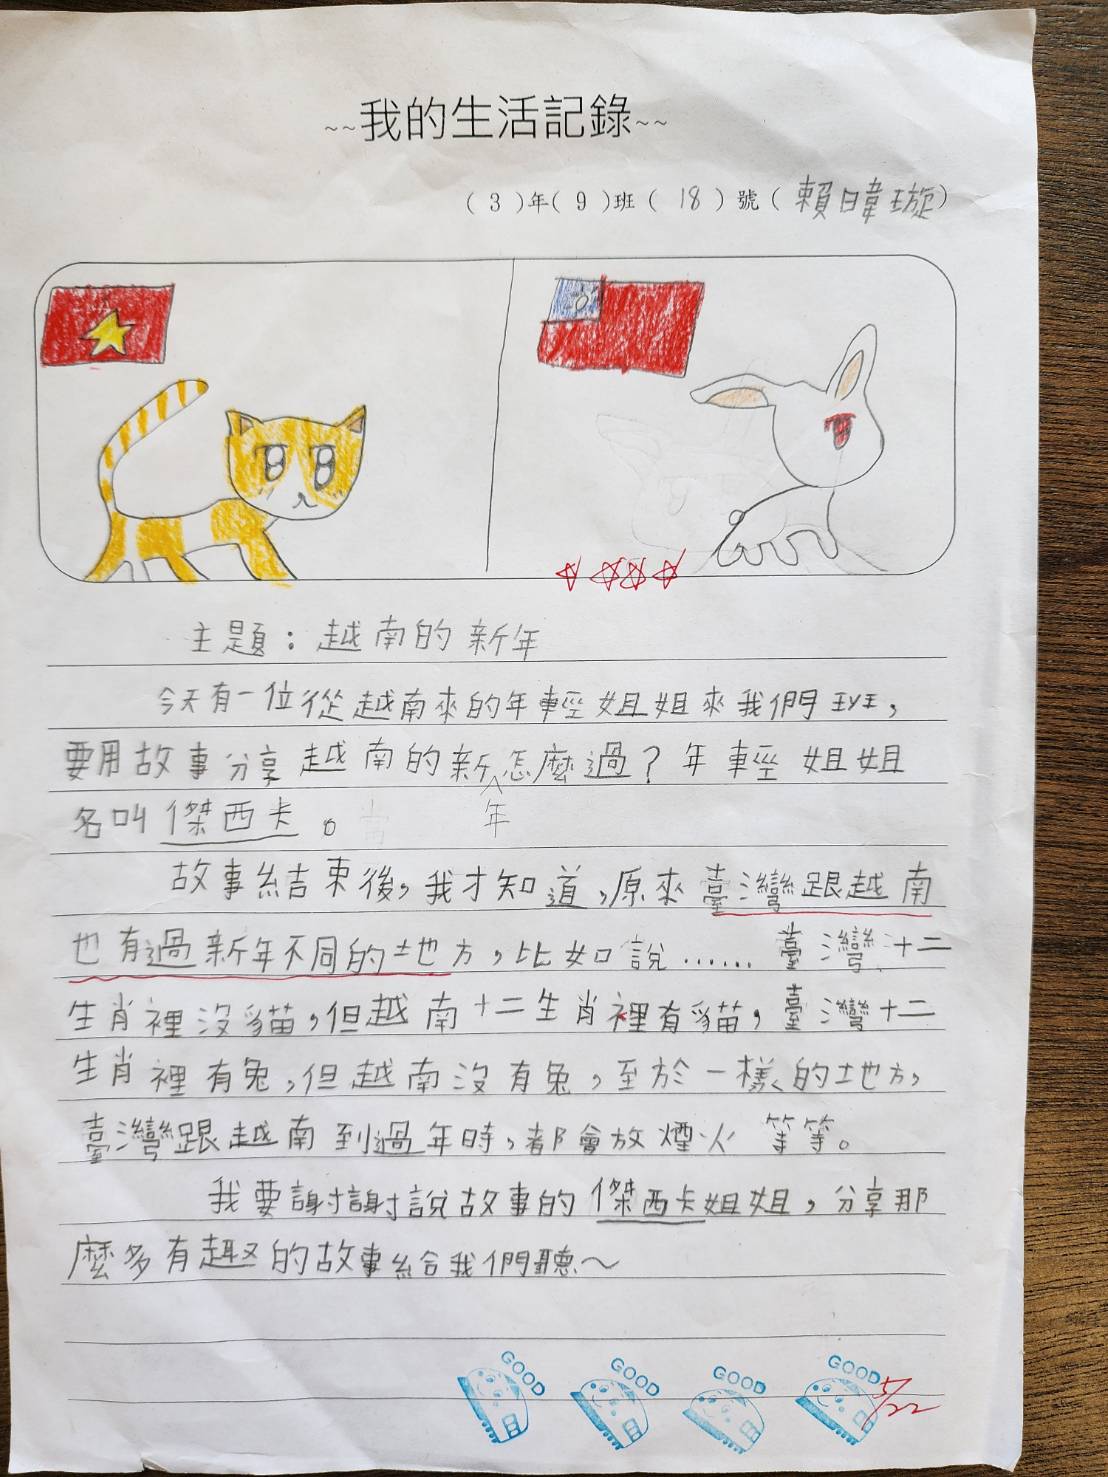 ~~我的生活記錄~~
(3)年(9)班(18)號(賴暐璇)
主題：越南的新年
今天有一位從越南來的年輕姐姐來我們班，
要用故事分享越南的新年怎麼過？年輕姐姐
名叫傑西卡。
故事結束後，我才知道，原來臺灣跟越南
也有過新年不同的地方，比如說……臺灣十二
生肖裡沒貓，但越南十二生肖裡有貓，臺灣十二
生肖裡有兔，但越南沒有兔，至於一樣的地方，
臺灣跟越南到過年時，都會放煙火等等。
我要謝謝說故事的傑西卡姐姐，分享那
麼多有趣的故事給我們聽～
GOOD GOOD GOOD GOOD
5/22